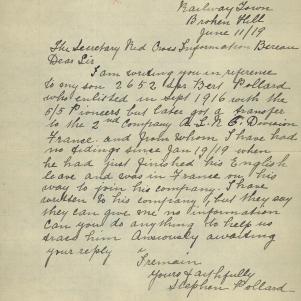 Railway Town
Broken Hill
June 11/19
The Secretary Red Cross Information Bereau
Dear Sir
I am writing you in reference
to my son 2652 Spr Bert Pollard
who enlisted in Sept 1916 with the
5/5 Pioneers but later got a transfer
to the 2nd Company A.L.R.O. Division
France. and from whom I have had
no tidings since Jan 19/19 when
he had just finished his English
leave and was in France on his
way to join his company. I have
written to his company, but they say
they can give me no information
Can you do anything to help us
trace him Anxiously awaiting
your reply
I remain
Yours faithfully
Stephen Pollard.